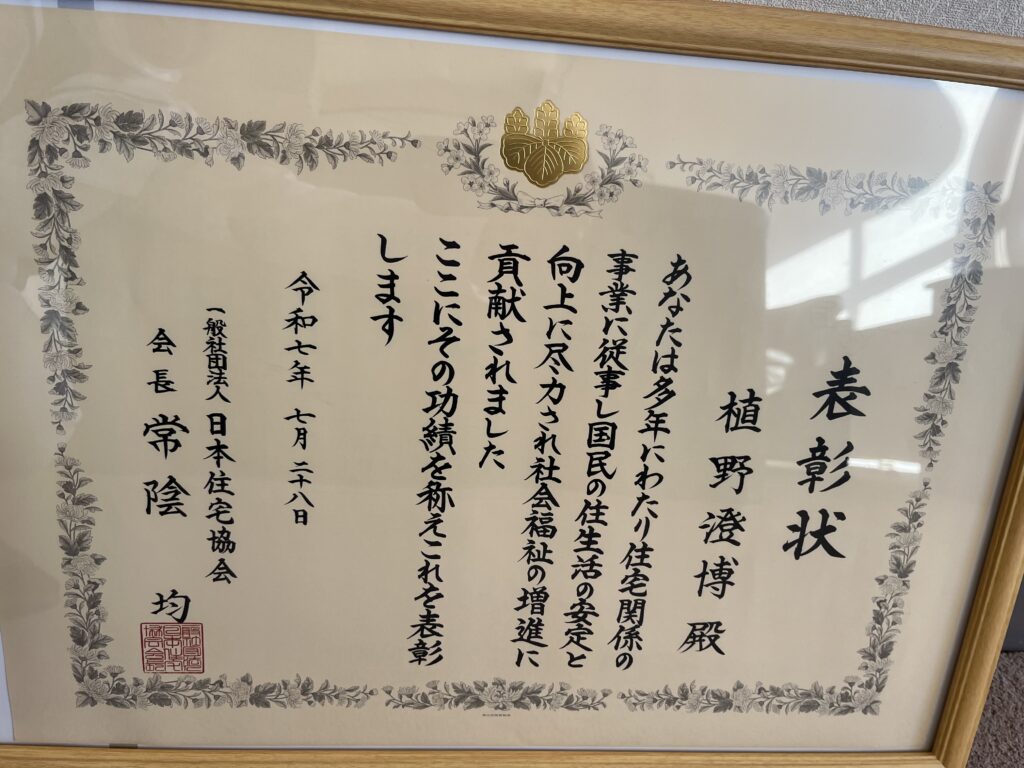 表彰状
植野澄博殿
あなたは多年にわたり住宅関係の
事業に従事し国民の住生活の安定と
向上に尽力され社会福祉の増進に
貢献されました
ここにその功績を称えこれを表彰
します
令和七年 七月二十八日
一般社団法人 日本住宅協会
会長 常陰 均